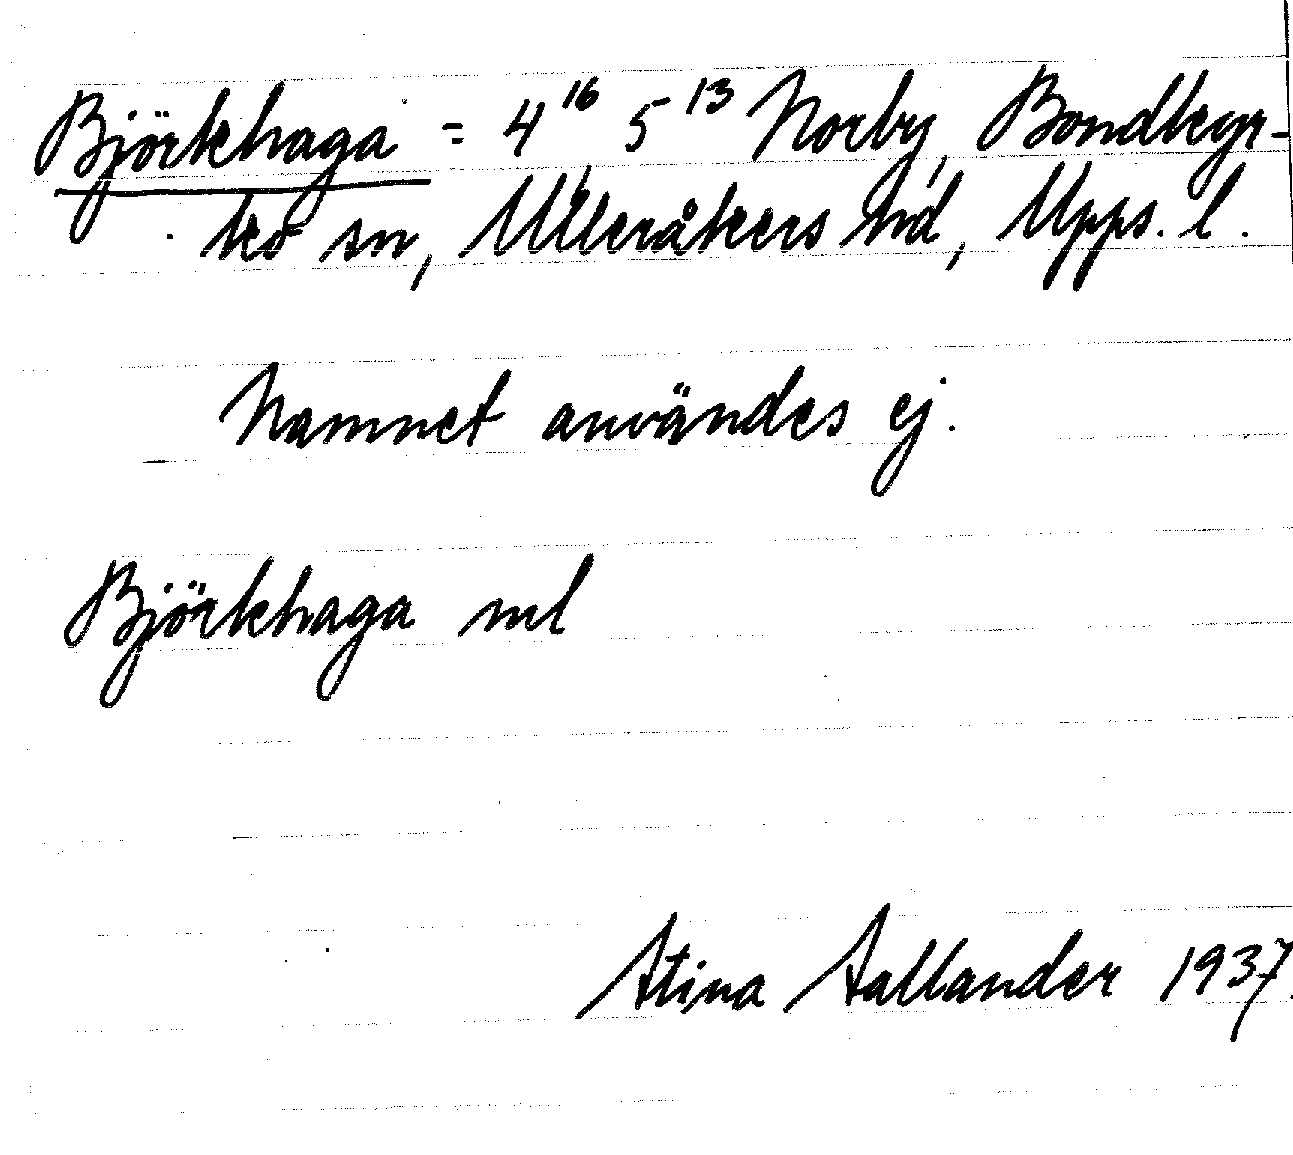 Björkhaga = 4¹⁶ 5¹³ Norby, Bondkyr-
ko sn, Ulleråkers hd, Upps. l.
Namnet användes ej.
Björkhaga ml
Stina Sallander 1937